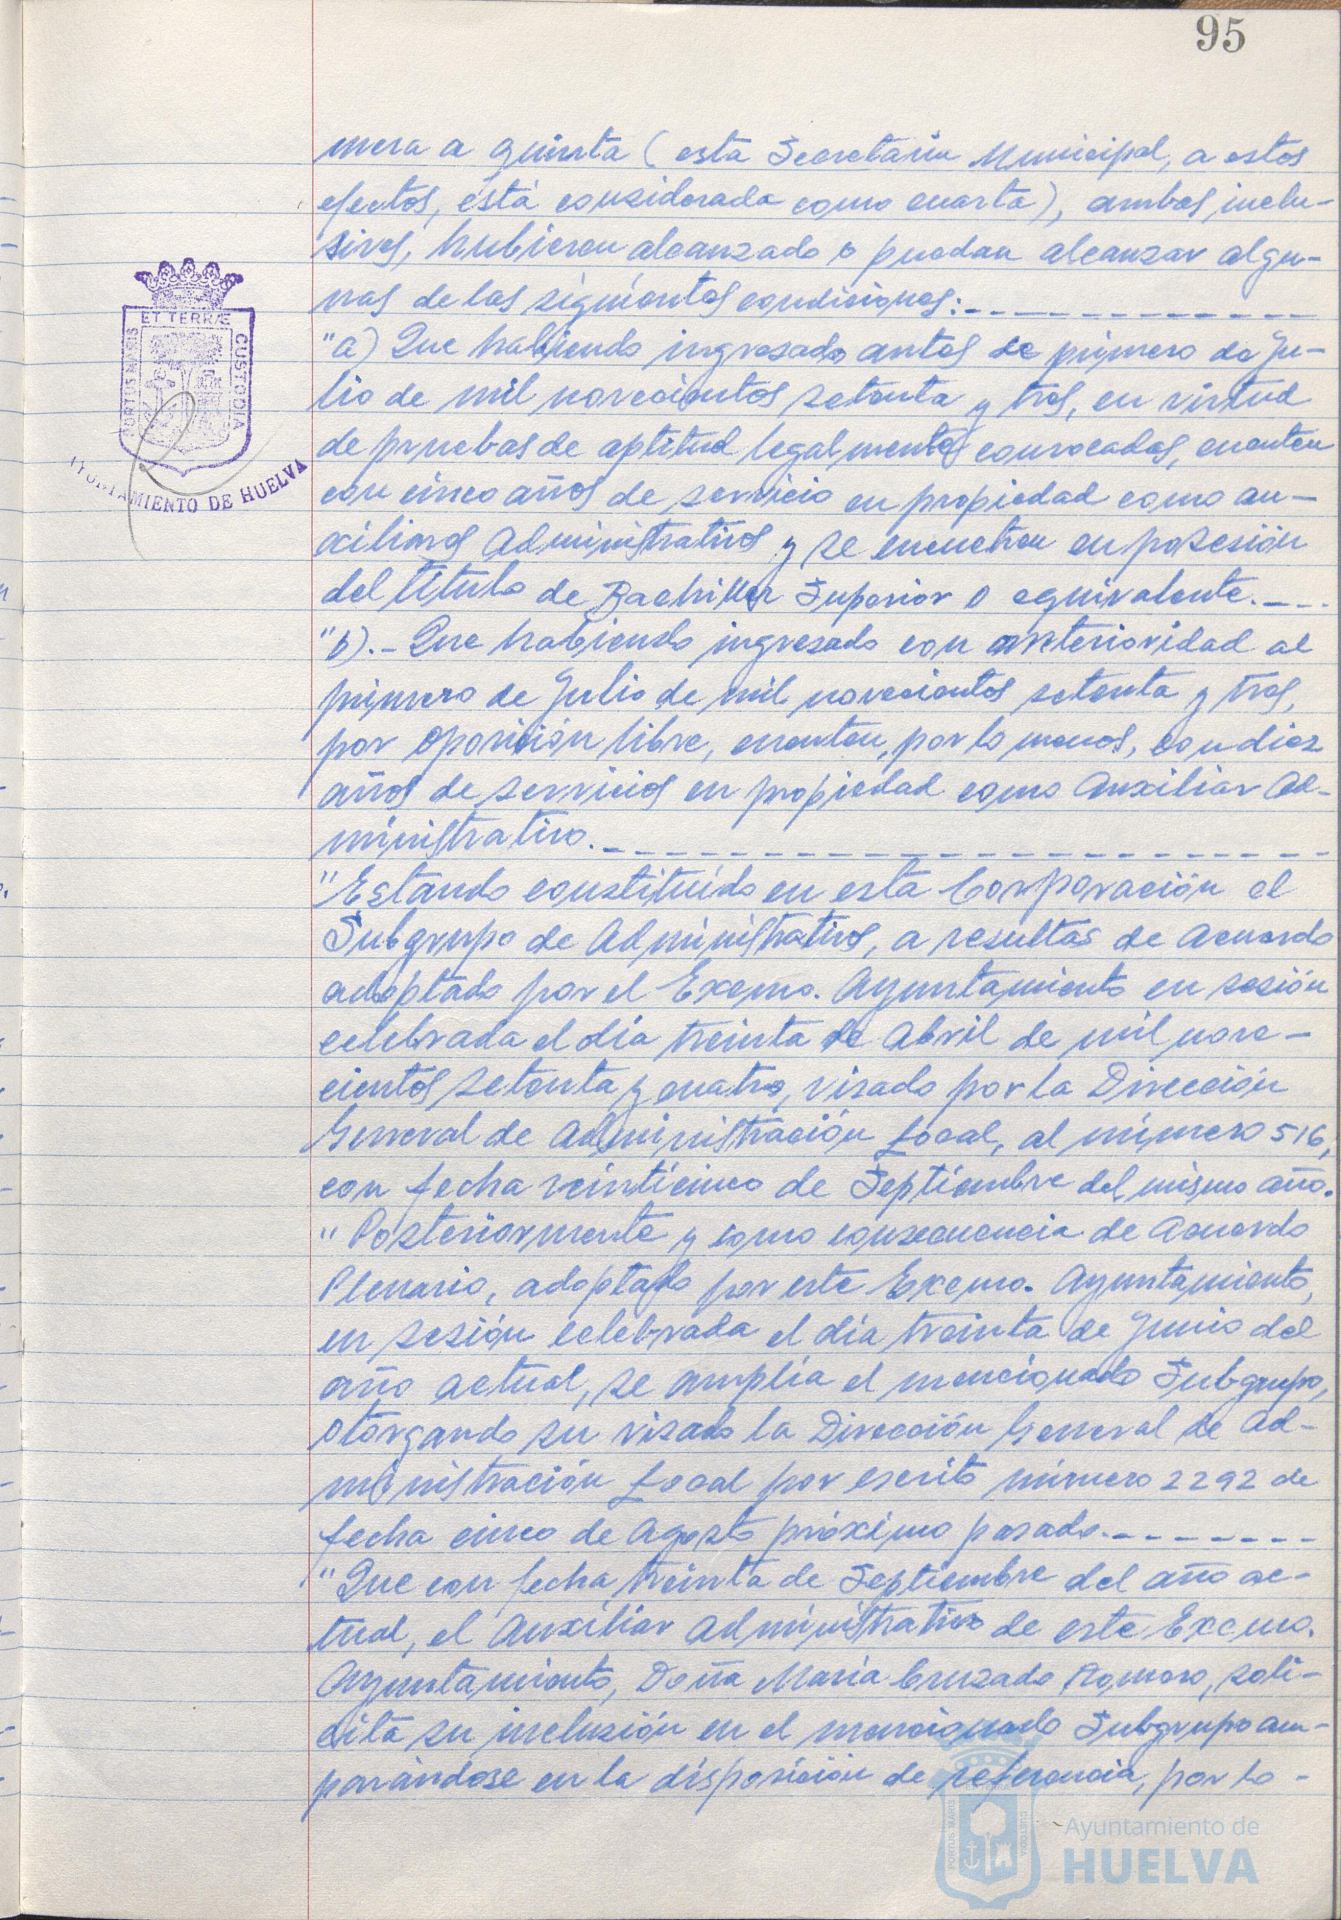 95
mera a quinta (esta Secretaría Municipal, a estos
efectos, está considerada como cuarta), ambas inclu-
sives, hubieren alcanzado o puedan alcanzar algu-
nas de las siguientes condiciones:
"a) Que habiendo ingresado antes de primero de Ju-
lio de mil novecientos setenta y tres, en virtud
de pruebas de aptitud legalmente convocadas, cuenten
con cinco años de servicio en propiedad como au-
xiliares Administrativos y se encuentren en posesión
del título de Bachiller Superior o equivalente.
"b).- Que habiendo ingresado con anterioridad al
primero de Julio de mil novecientos setenta y tres,
por oposición libre, cuenten, por lo menos, con diez
años de servicios en propiedad como Auxiliar Ad-
ministrativo.
"Estando constituido en esta Corporación el
Subgrupo de Administrativos, a resultas de Acuerdo
adoptado por el Excmo. Ayuntamiento en sesión
celebrada el día treinta de Abril de mil nove-
cientos setenta y cuatro, visado por la Dirección
General de Administración Local, al número 516,
con fecha veinticinco de Septiembre del mismo año.
"Posteriormente y como consecuencia de Acuerdo
Plenario, adoptado por este Excmo. Ayuntamiento,
en sesión celebrada el día treinta de Junio del
año actual, se amplía el mencionado Subgrupo,
otorgando su visado la Dirección General de Ad-
ministración Local por escrito número 2292 de
fecha cinco de Agosto próximo pasado.
"Que con fecha treinta de Septiembre del año ac-
tual, el Auxiliar Administrativo de este Excmo.
Ayuntamiento, Doña María Cruzado Romero, soli-
cita su inclusión en el mencionado Subgrupo am-
parándose en la disposición de referencia, por lo-
PORTUS MARIS
ET TERRÆ
CUSTODIA
AYUNTAMIENTO DE HUELVA
Ayuntamiento de
HUELVA